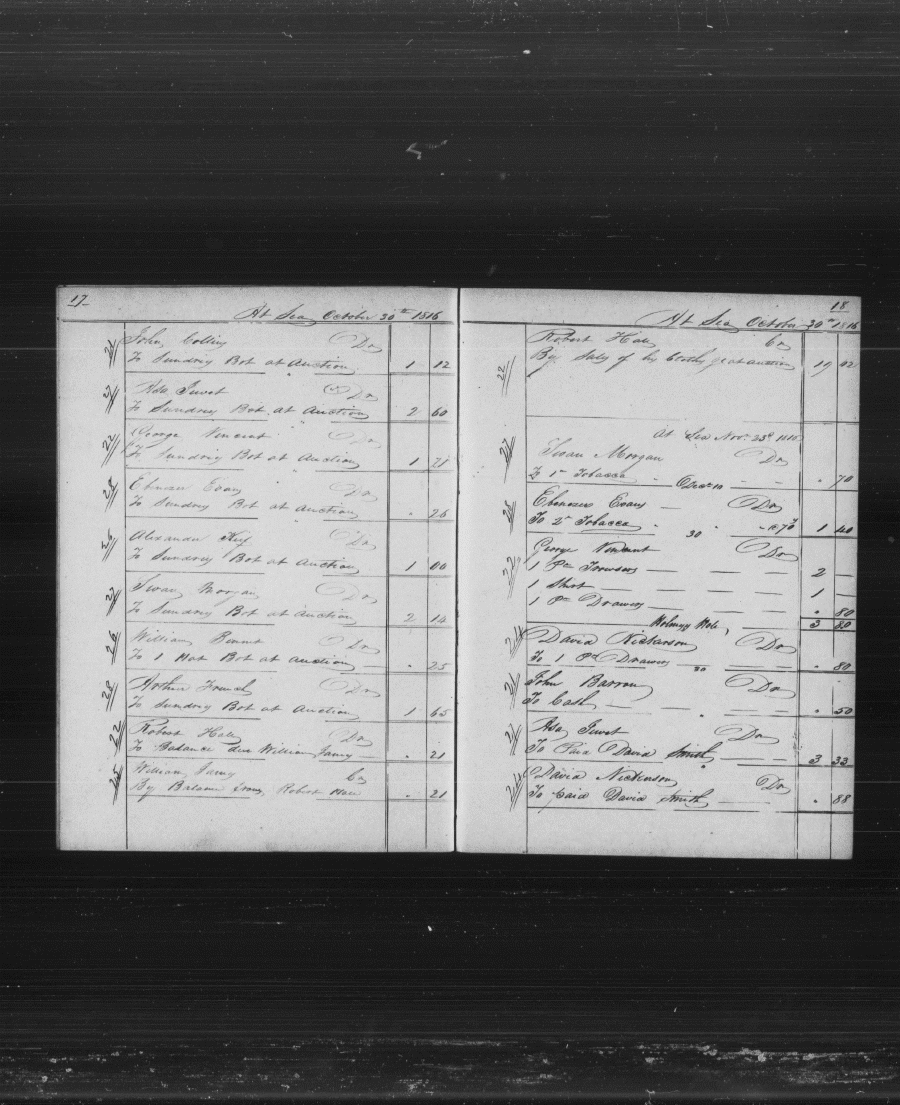 17
At Sea October 30th 1816
21 John Collins Dr
To Sundrys Bot at Auction 1 12
21 Asa Swet Dr
To Sundrys Bot at Auction 2 60
22 George Vincent Dr
To Sundrys Bot at Auction 1 71
28 Ebenezer Evans Dr
To Sundrys Bot at Auction " 26
26 Alexander Dr
To Sundrys Bot at Auction 1 00
27 Swan Morgan Dr
To Sundrys Bot at Auction 2 14
26 William Dr
To 1 Hat Bot at Auction " 25
28 Arthur French Dr
To Sundrys Bot at Auction 1 65
22 Robert Hale Dr
To Balance due William " 21
25 William Cr
By Balance from Robert Hale " 21
18
At Sea October 30th 1816
22 Robert Hale Cr
By Sales of his at auction 19 02
At Sea Nov. 23d 1816
27 Swan Morgan Dr
To 1 lb Tobacco " 70
Decr 10
28 Ebenezer Evans Dr
To 2 lb Tobacco @ 70 1 40
30
22 George Vincent Dr
1 Pr Trowsers 2 —
1 Shirt 1 —
1 Pr Drawers " 80
3 80
Holmes Hole
24 David Nickerson Dr
To 1 Pr Drawers " 80
30
21 John Barron Dr
To Cash " 50
21 Asa Swet Dr
To Paid David Smith 3 33
24 David Nickerson Dr
To Paid David Smith " 88